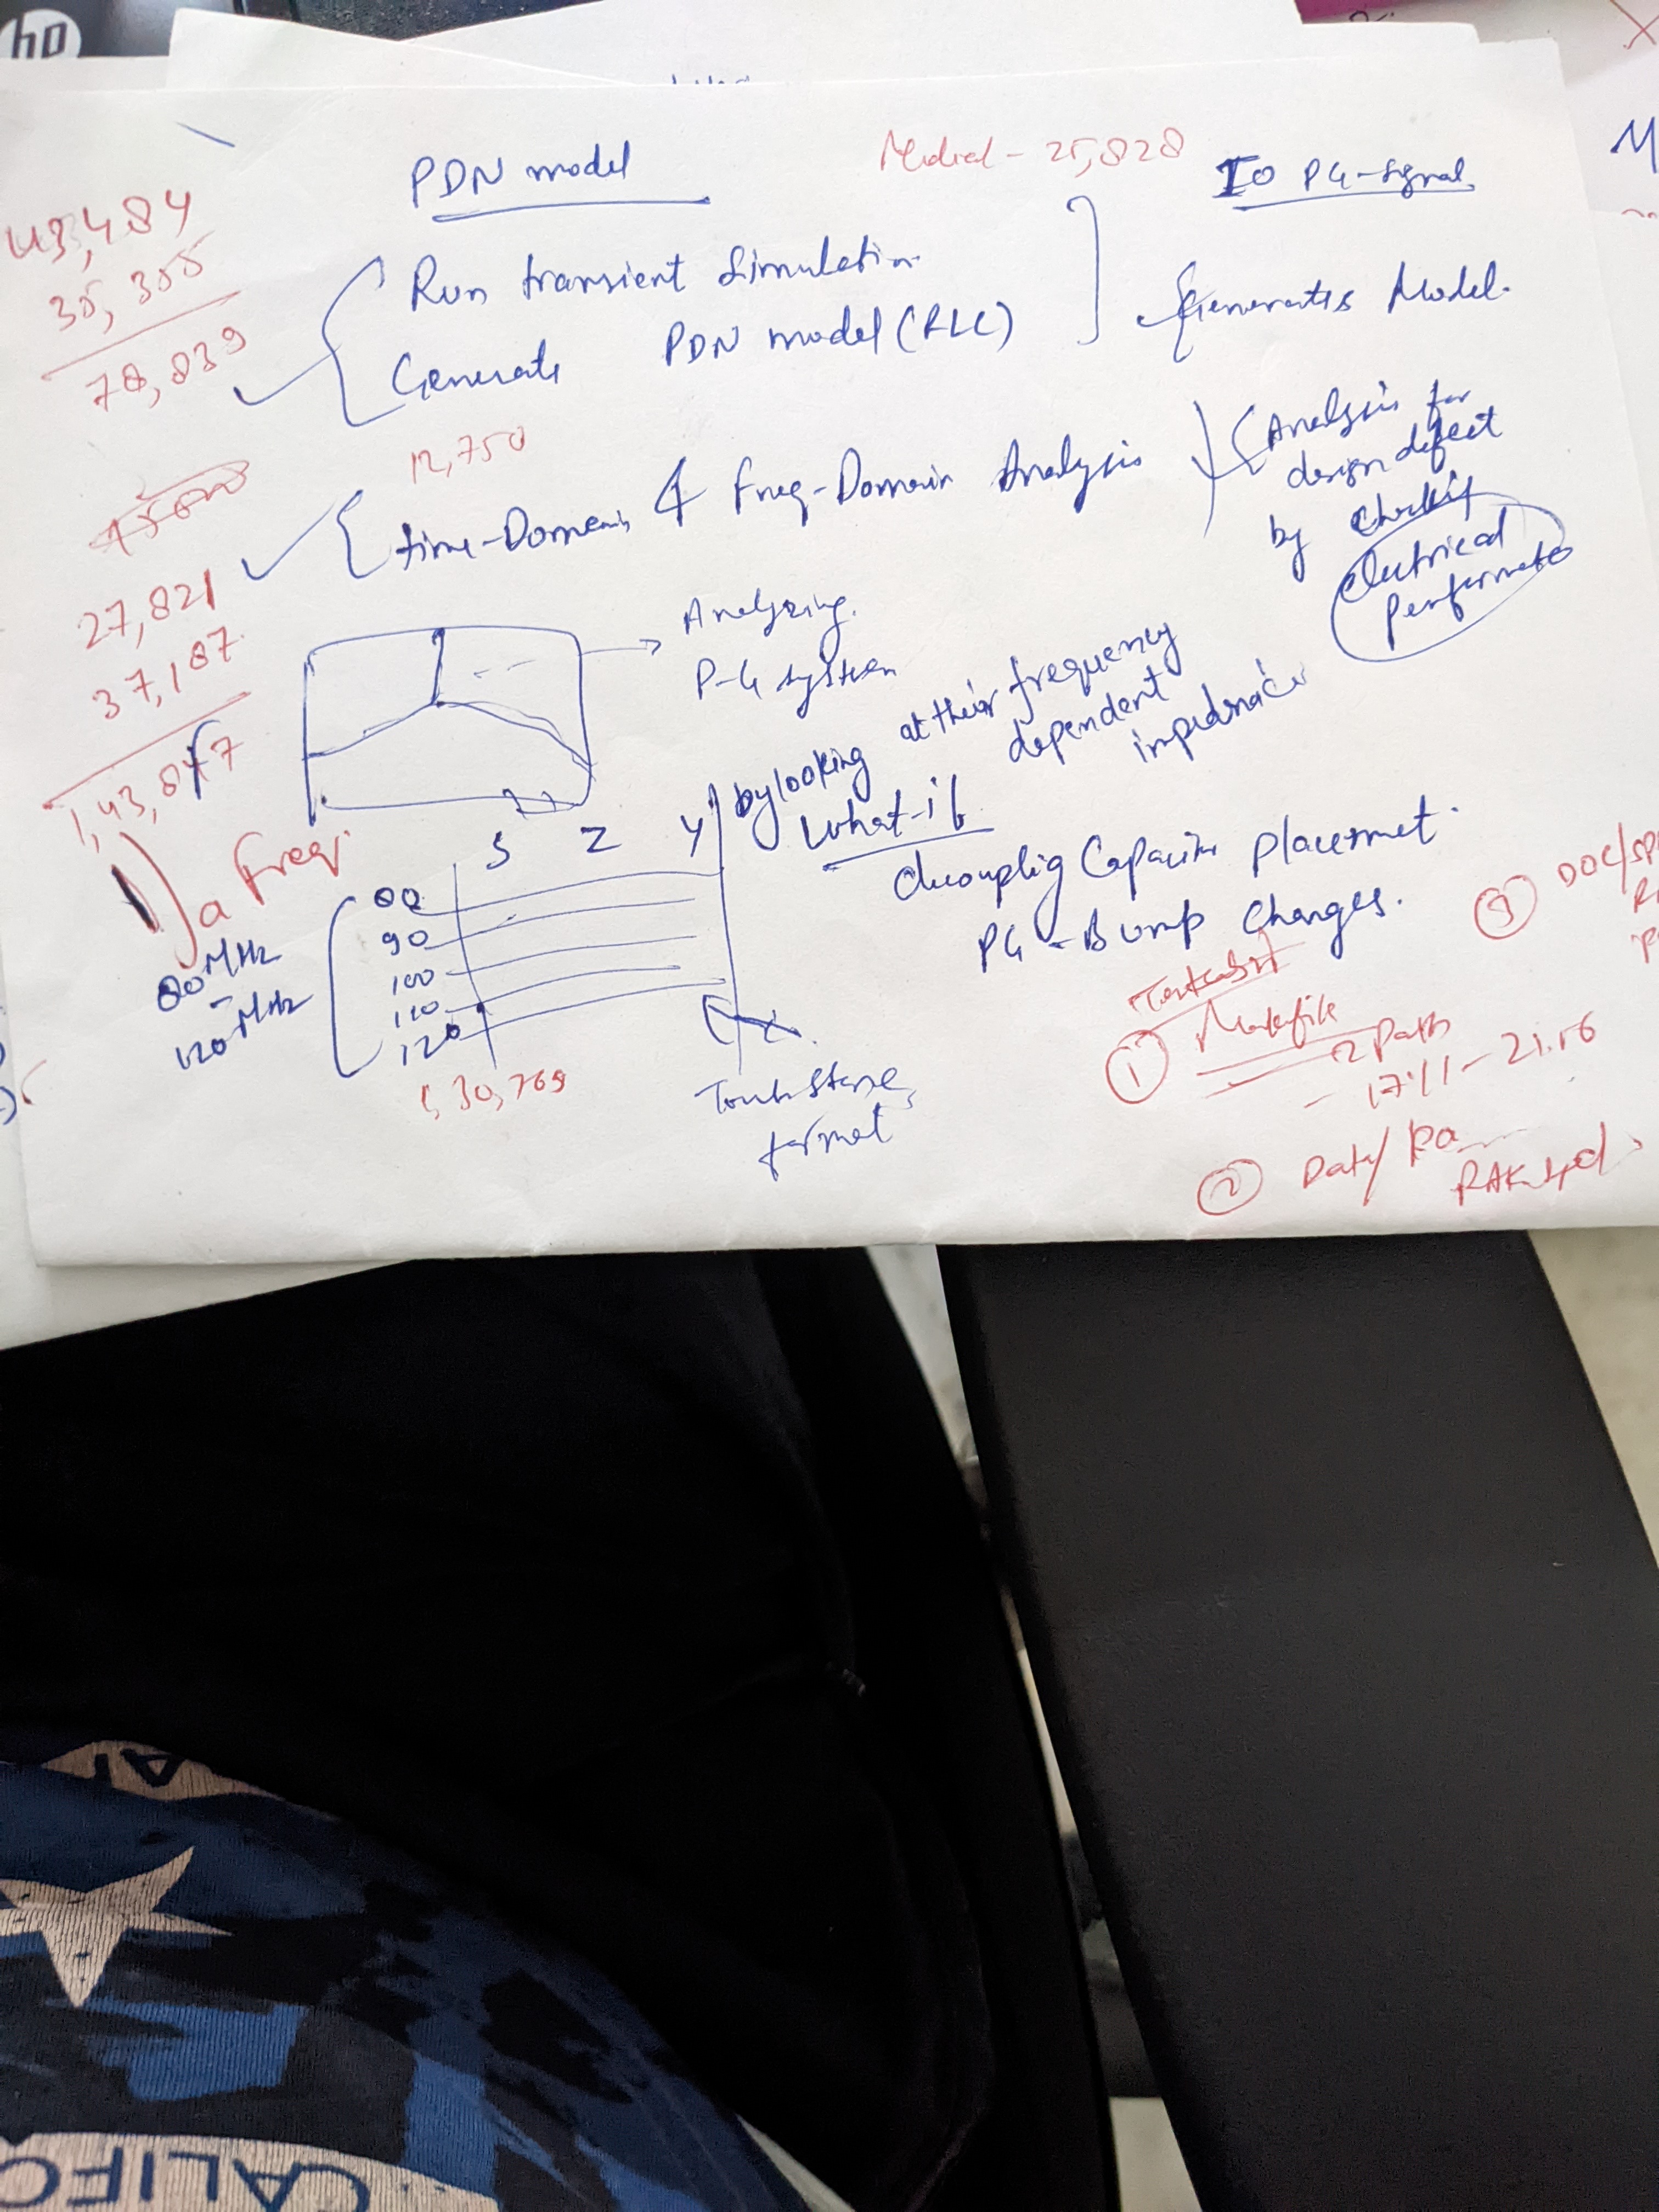 hp
PDN model
Medical - 25,828
IO PG-signal
43,484
35,355
78,839
Run transient Simulation
Generate PDN model (RLC)
Generates Model.
12,750
27,821
37,187
time-Domain & Freq-Domain Analysis
Analysis for
design defect
by checking
electrical
performate
Analyzing
P-G system
by looking at their frequency
dependent
impednace
What-if
decouplig Capacitor placemnet.
PG-Bump Changes.
a Freq.
80 MHz
-
120 MHz
S Z Y
80
90
100
110
120
1,30,769
Touchstone
format
① Makefile
2 Path
- 17.11 - 21.16
② Data/
RAK
③ DOC/
M
CALIFO